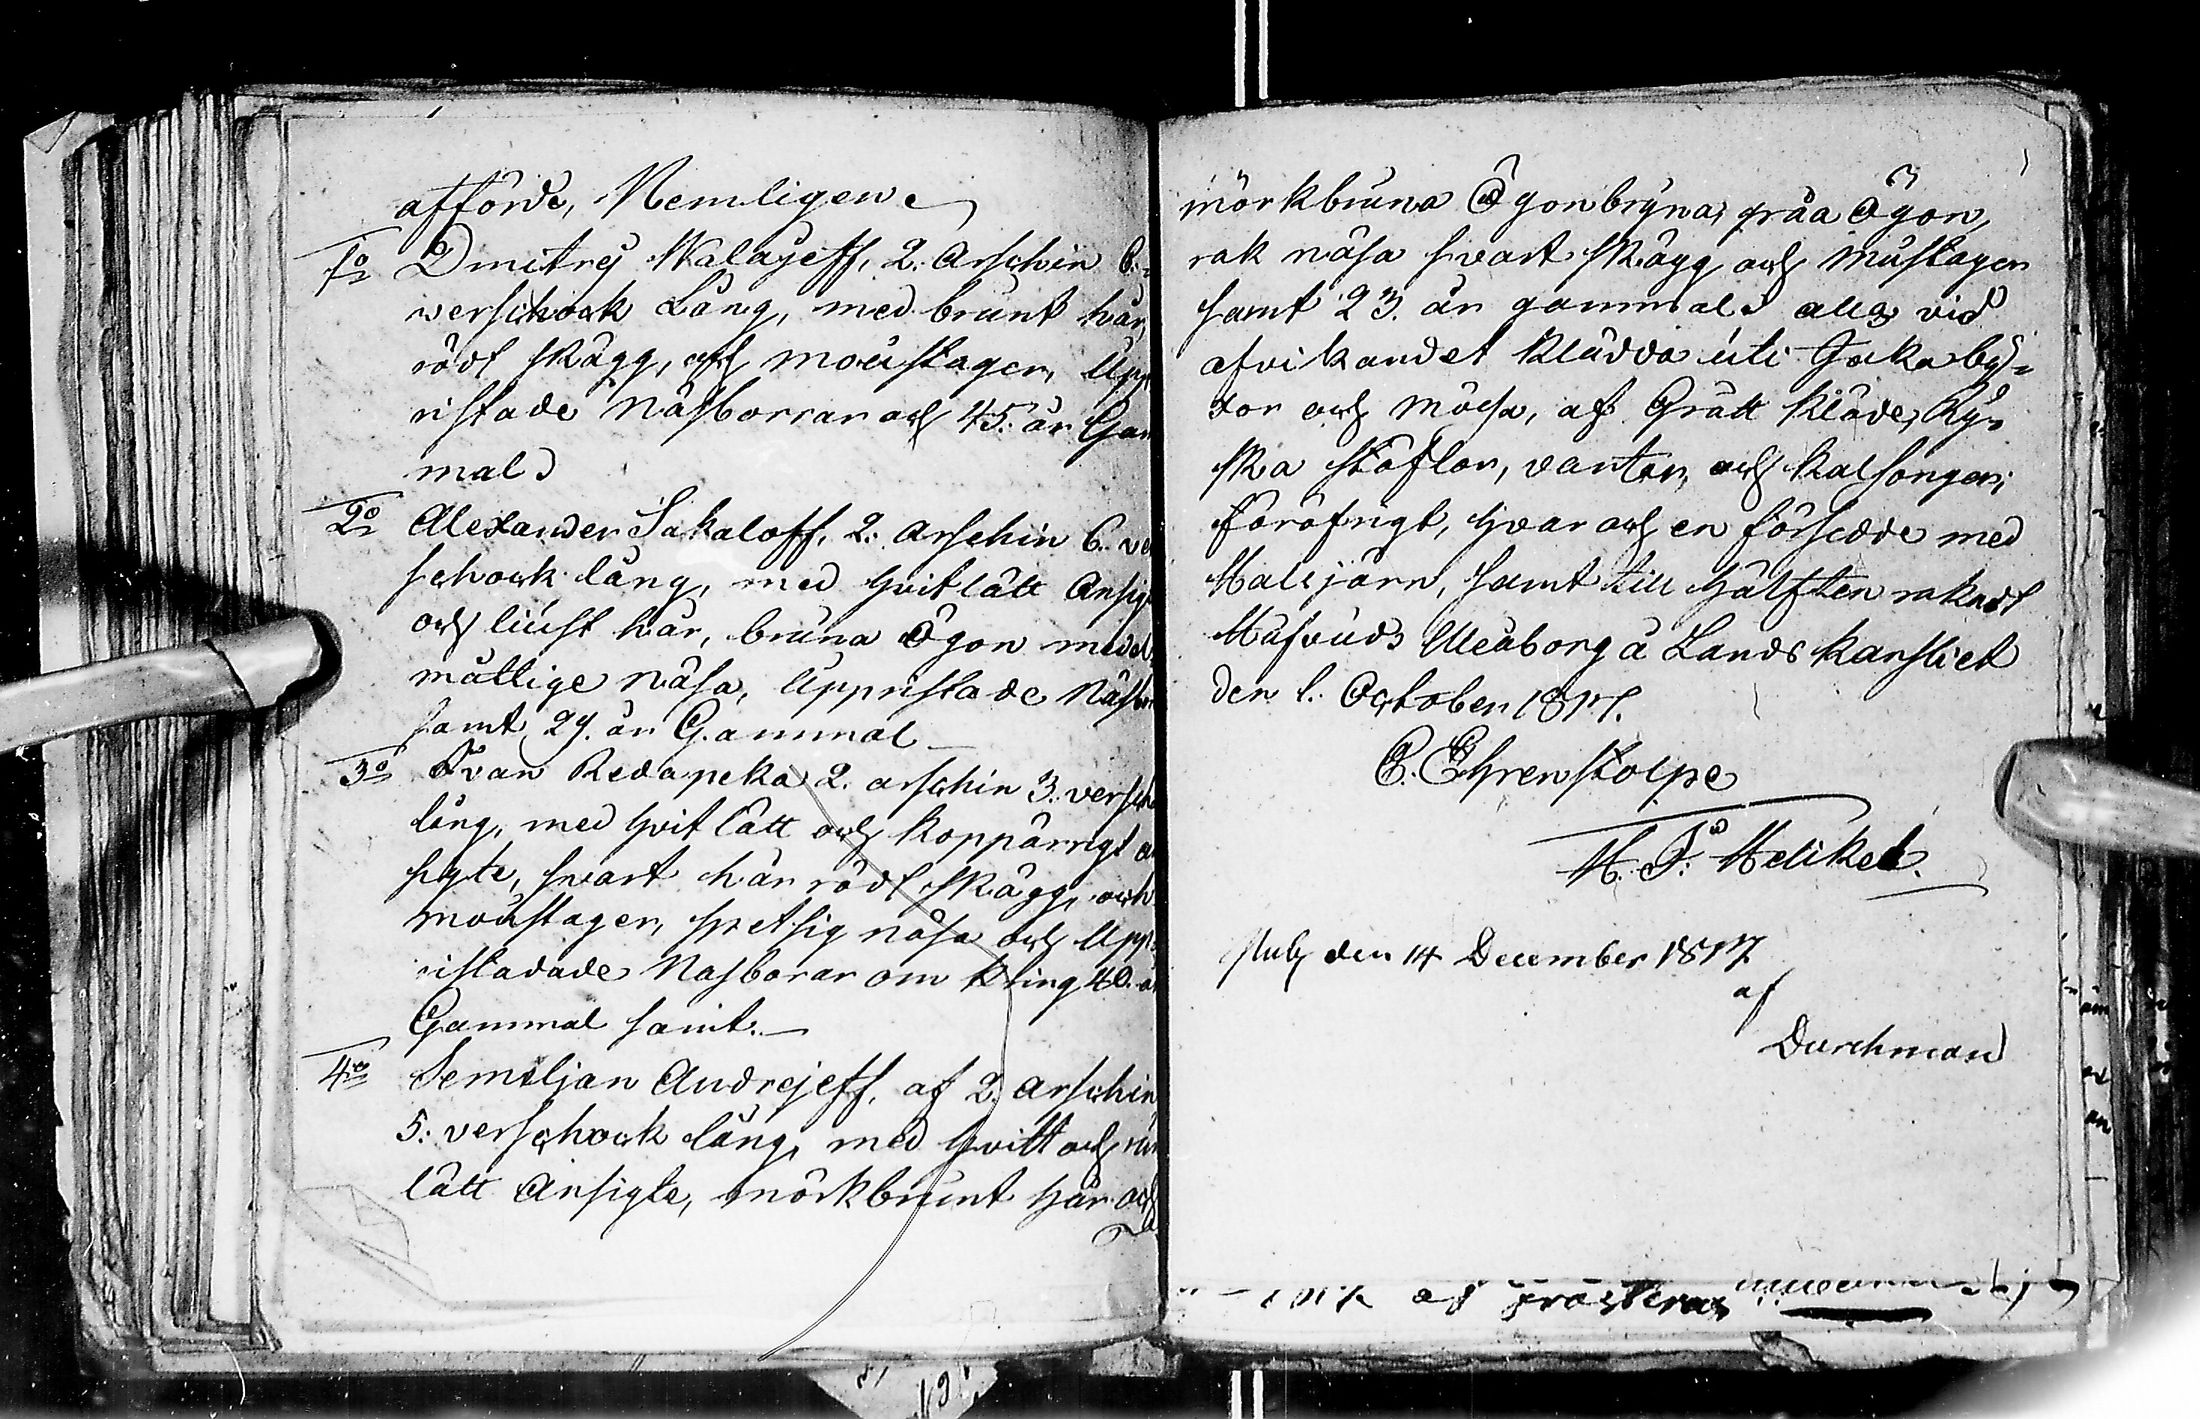 afförde, Nemligen
1o Dmitrej Malajeff, 2. Arschin 6.
verschock Lång, med brunt hår,
rödt skägg, och moustager, Upp
ristade Näsborrar och 45. år Gam
mal
2o Alexander Sakaloff, 2. Arschin 6. ver
schock lång, med hvitlätt Ansig
och liust hår, bruna Ögon medel
måttige näsa, Uppristade Näsbor
samt 29. år Gammal
3o Ivan Redapeka 2. arschin 3. versch
lång, med hvitlätt och koppärrigt an
sigte, svart hår rödt skägg, och
moustager, spetsig näsa och Upp
ristadade Nasborar omkring 40. år
Gammal samt.
4o Semiljan Andrejeff, af 2. Arschin
5. verschock lång, med hvitt och run
lätt Ansigte, mörkbrunt hår och
mörkbruna Ögonbryna, gråa Ögon,
rak näsa svart skägg och mustager
samt 23. år gammal alla vid
afvikandet klädda uti Jacka byx=
sor och mössa, af Grått kläde, Ry=
ska stöflor, vantar, och kalsonger;
föröfrigt, hvar och en försedde med
Halsjärn, samt till hälften rakadt
Hufvud; Uleåborg å Lands kansliet
den 1. October 1817.
C. Ehrenstolpe
H. F. Heliket.
Publ den 14 December 1817
af
Durchman
af